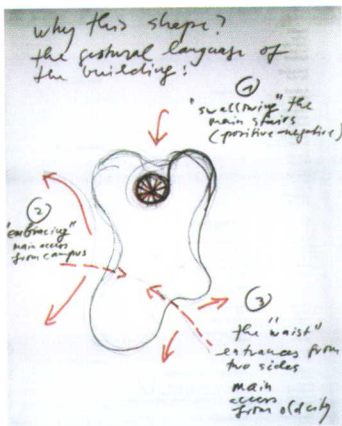 why this shape?
the gestural language of
the building:
1
"swallowing" the
main stairs
(positive-negative)
2
"embracing"
main access
from campus
3
the "waist"
entrances from
two sides
main
access
from old city